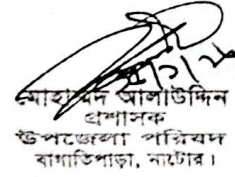 মোহাম্মদ আলাউদ্দিন
প্রশাসক
উপজেলা পরিষদ
বাগাতিপাড়া, নাটোর।